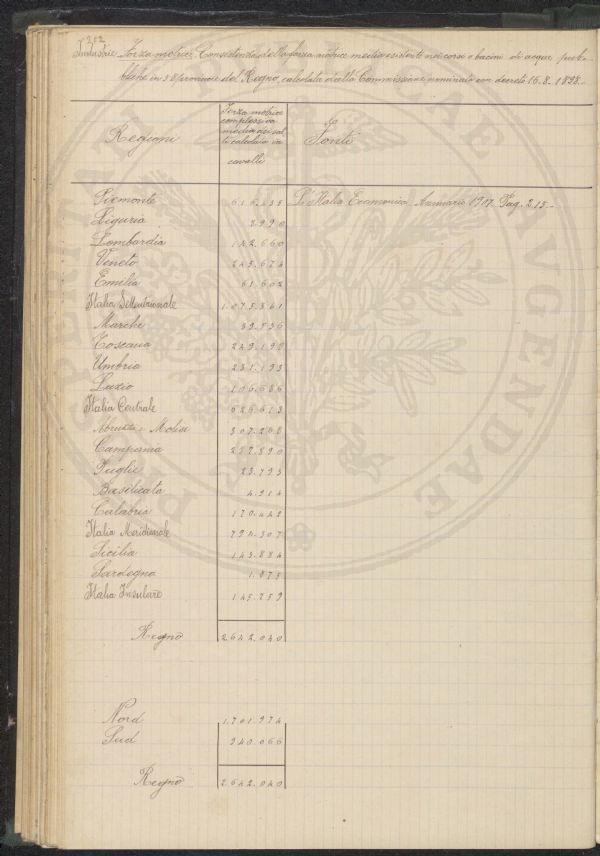 202
Industrie Forza motrice. Consistenza della forza motrice media esistente nei corsi e bacini di acqua pub-
bliche in 58 provincie del Regno, calcolata dalla Commissione nominata con decreto 16.8.1898.
Regioni
Forza motrice
complessiva
media dei sal
ti calcolata in
cavalli
Le
Fonti
Piemonte 616.435 L'Italia Economica Annuario 1907. Pag. 215.
Liguria 8.990
Lombardia 142.660
Veneto 245.674
Emilia 61.602
Italia Settentrionale 1.075.361
Marche 39.536
Toscana 249.198
Umbria 231.193
Lazio 106.686
Italia Centrale 626.613
Abruzzi e Molise 307.268
Campania 287.890
Puglie 23.793
Basilicata 4.914
Calabria 170.442
Italia Meridionale 794.307
Sicilia 143.884
Sardegna 1.875
Italia Insulare 145.759
Regno 2.642.040
Nord 1.701.974
Sud 940.066
Regno 2.642.040